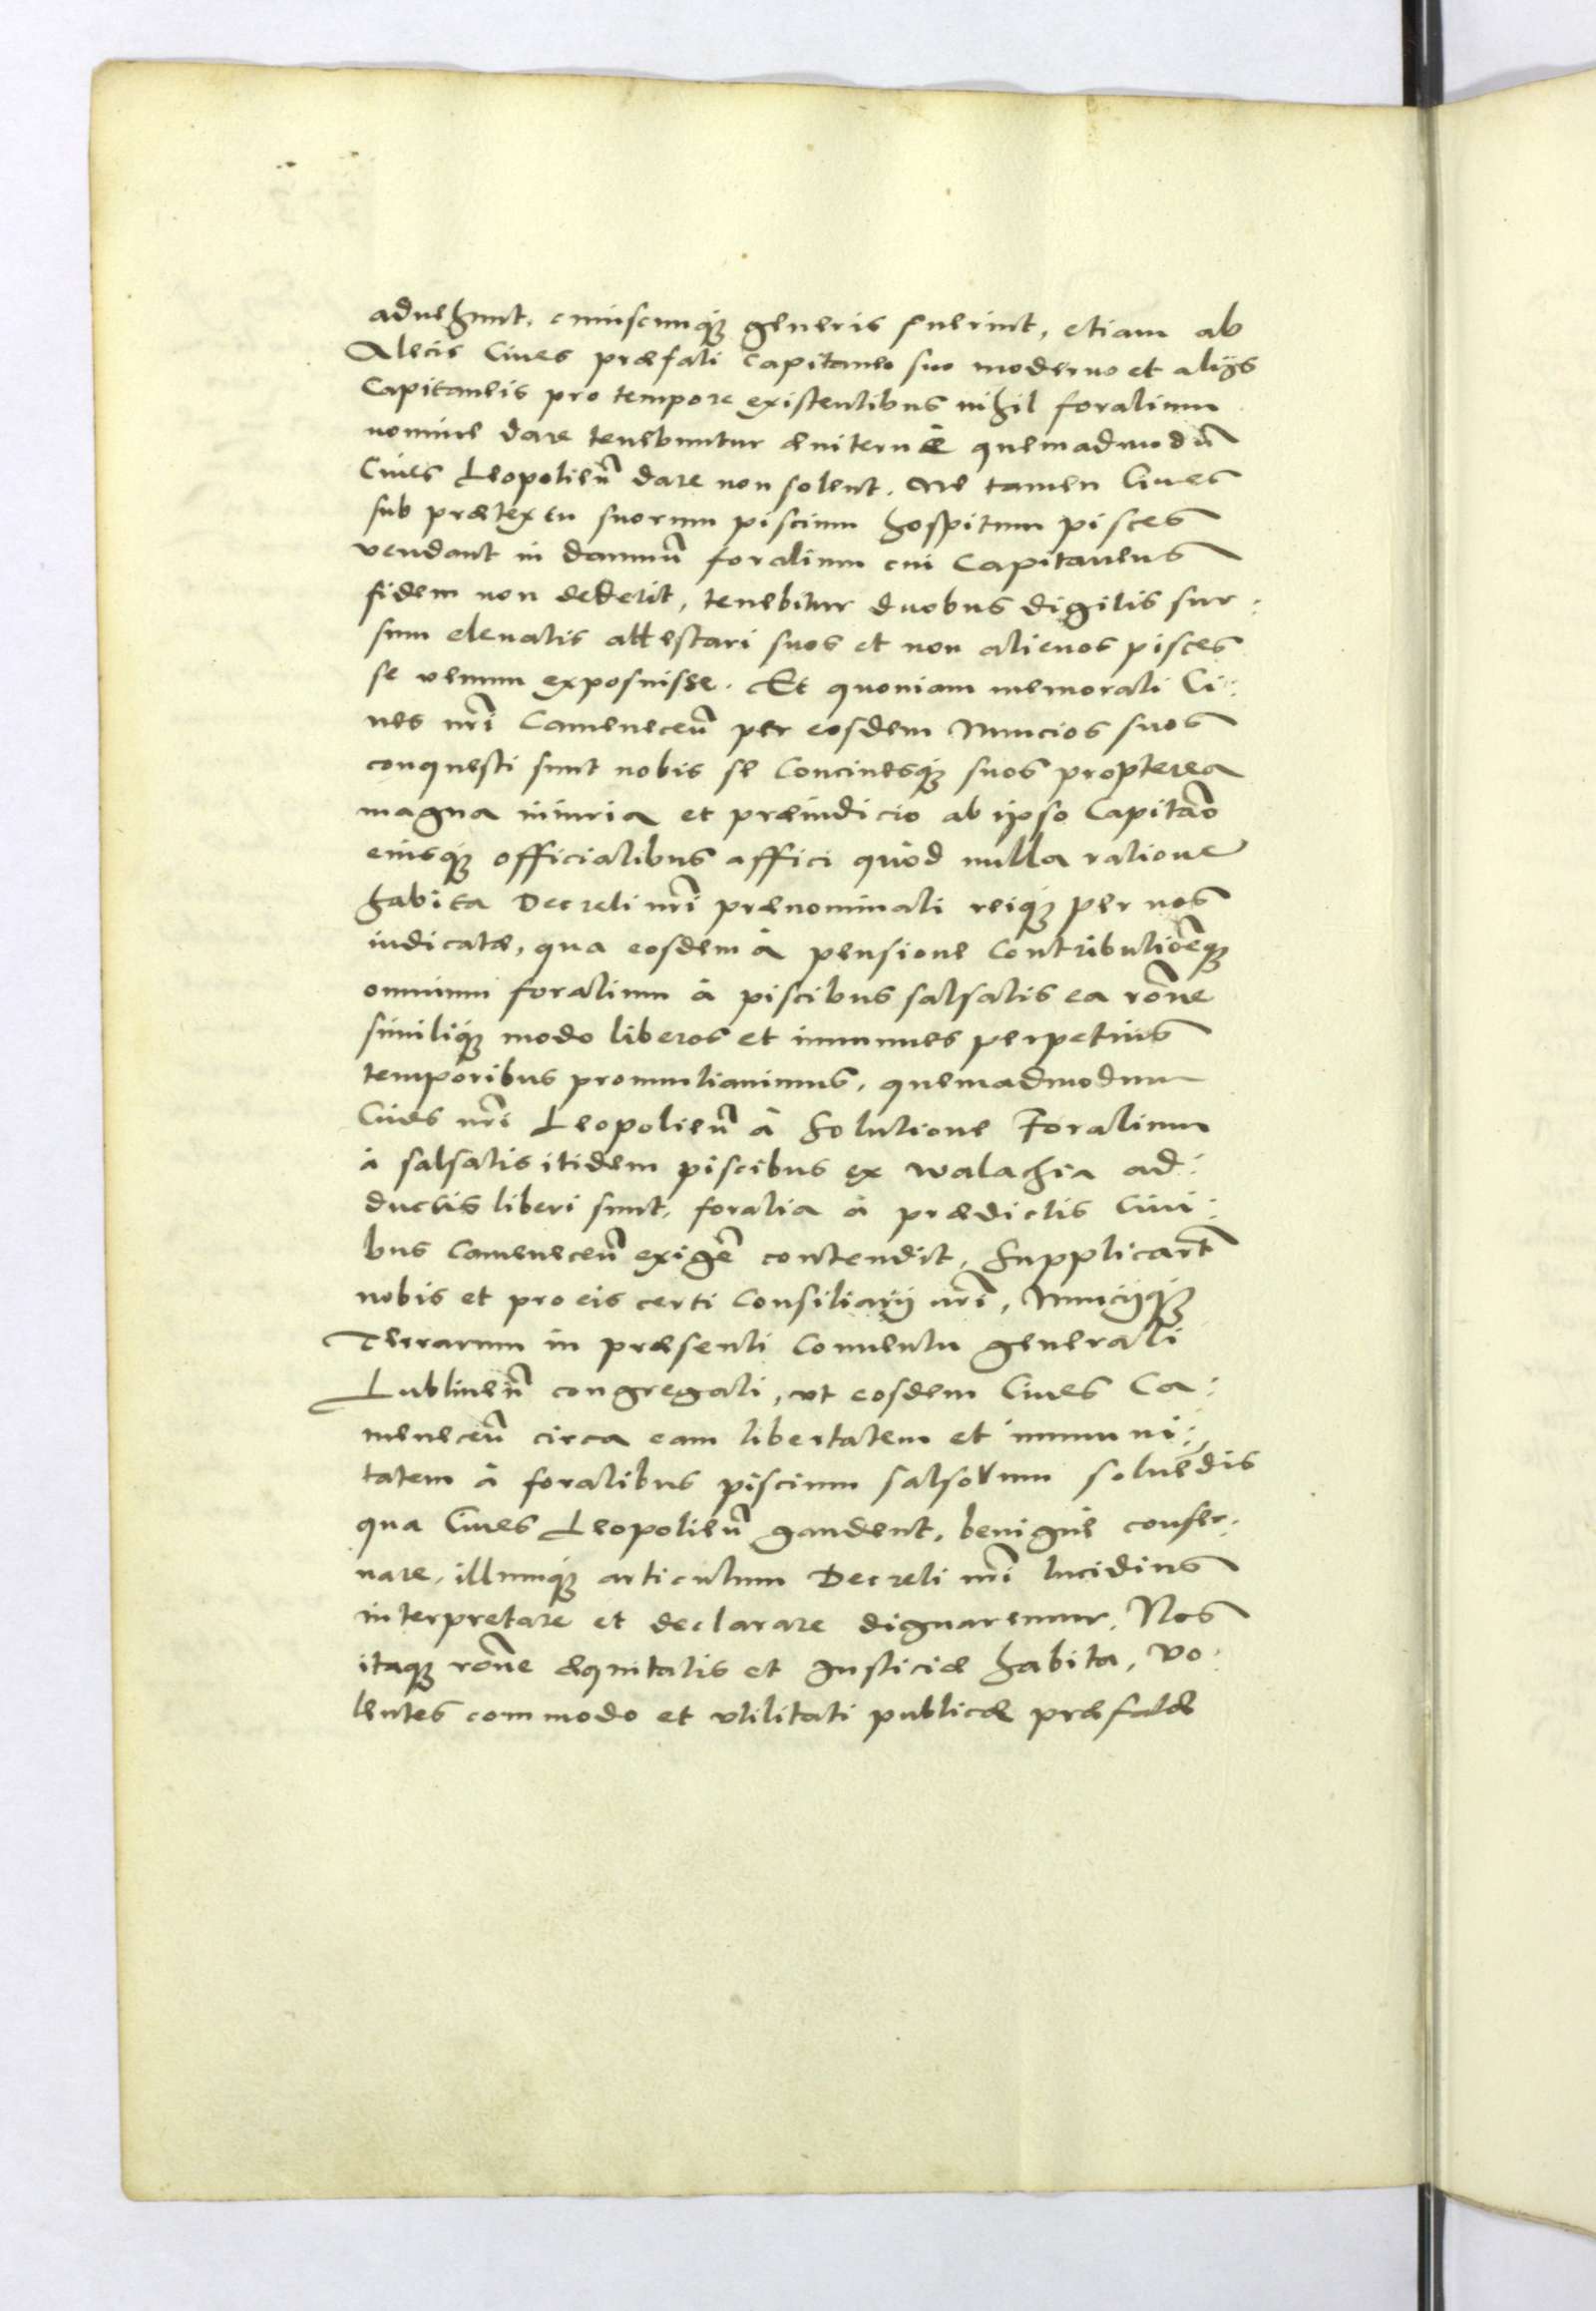 aduehunt, cuiuscunq́ generis fuerint, etiam ab
Alecis Ciues præfati Capitaneo suo moderno et alijs
Capitaneis pro tempore existentibus nihil foralium
nomine dare tenebuntur æuiternè quemadmodũ
Ciues Leopolieñ dare non solent. Ne tamen Ciues
sub prætextu suorum piscium hospitum pisces
vendant in damnũ foralium cui Capitaneus
fidem non dederit, tenebitur duobus digitis sur:
sum eleuatis attestari suos et non alienos pisces
se venum exposuisse. Et quoniam memorati Ci:
ues nr̃i Cameneceñ per eosdem Nuncios suos
conquesti sunt nobis se Conciuesq́ suos propterea
magna iniuria et præiudicio ab ipso Capitãeo
eiusq́ officialibus affici quòd nulla ratione
habita Decreti nr̃i prænominati reiq́ per nos
iudicatæ, qua eosdem à pensione Contributiõeq́
omnium foralium à piscibus salsatis ea rõne
similiq́ modo liberos et immunes perpetuis
temporibus pronuntiauimus, quemadmodum
Ciues nr̃i Leopolieñ à Solutione Foralium
à salsatis itidem piscibus ex Walachia ad:
ductis liberi sunt, foralia à prædictis Ciui:
bus Cameneceñ exigẽ contendit, Supplicarũt
nobis et pro eis certi Consiliarij nr̃i, Nuncijq́
Terrarum in præsenti Conuentu generali
Lublineñ congregati, vt eosdem Ciues Ca:
meneceñ circa eam libertatem et immuni:
tatem à foralibus piscium salsorum soluẽdis
qua Ciues Leopolieñ gaudent, benignè conser:
uare, illumq́ articulum Decreti nr̃i lucidius
interpretare et declarare dignaremur. Nos
itaq́ rõne æquitatis et Justiciæ habita, vo:
lentes commodo et vtilitati publicæ præfatæ